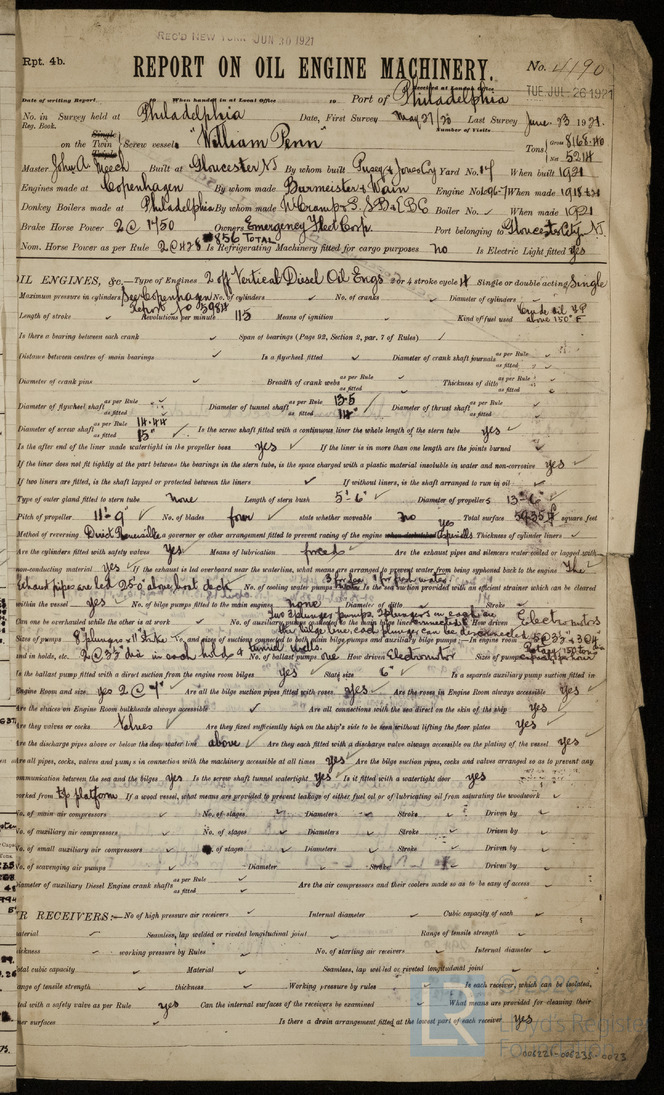 REC'D NEW YORK JUN 30 1921
Rpt. 4b.
REPORT ON OIL ENGINE MACHINERY.
No. 4190
Received at London Office
TUE. JUL 26 1921
Date of writing Report When handed in at Local Office 10 Port of Philadelphia
No. in Survey held at Philadelphia Date, First Survey May 27/20 Last Survey June 23 1921.
Reg. Book. Number of Visits
Single
on the Twin Screw vessel "William Penn" Tons Gross 8168.40
Triple Net 5214
Master John A. Meech Built at Gloucester NJ By whom built Pusey & Jones Coy Yard No. 17 When built 1921
Engines made at Copenhagen By whom made Burmeister & Wain Engine No. When made
Donkey Boilers made at Philadelphia By whom made W Cramp & S. S B & E B C Boiler No. When made 1921
Brake Horse Power 2 @ 1750 Owners Emergency Fleet Corp. Port belonging to Gloucester City N.J.
Nom. Horse Power as per Rule 2 @ 428 856 TOTAL Is Refrigerating Machinery fitted for cargo purposes no Is Electric Light fitted yes
OIL ENGINES, &c.—Type of Engines 2 off Vertical Diesel Oil Engs 2 or 4 stroke cycle 4 Single or double acting Single
Maximum pressure in cylinders See Copenhagen No. of cylinders No. of cranks Diameter of cylinders
Report No
Length of stroke Revolutions per minute 115 Means of ignition Kind of fuel used Crude oil F.P above 150° F
Is there a bearing between each crank Span of bearings (Page 92, Section 2, par. 7 of Rules)
Distance between centres of main bearings Is a flywheel fitted Diameter of crank shaft journals as per Rule as fitted
Diameter of crank pins Breadth of crank webs as per Rule as fitted Thickness of ditto as per Rule as fitted
Diameter of flywheel shaft as per Rule as fitted Diameter of tunnel shaft as per Rule 13.5 as fitted 14" Diameter of thrust shaft as per Rule as fitted
Diameter of screw shaft as per Rule 14.44 as fitted 15" Is the screw shaft fitted with a continuous liner the whole length of the stern tube yes
Is the after end of the liner made watertight in the propeller boss yes If the liner is in more than one length are the joints burned
If the liner does not fit tightly at the part between the bearings in the stern tube, is the space charged with a plastic material insoluble in water and non-corrosive yes
If two liners are fitted, is the shaft lapped or protected between the liners If without liners, is the shaft arranged to run in oil
Type of outer gland fitted to stern tube none Length of stern bush 5'-6" Diameter of propellers 13'-6"
Pitch of propeller 11'-9" No. of blades four state whether moveable no Total surface square feet
Method of reversing Direct Reversible Is a governor or other arrangement fitted to prevent racing of the engine yes Thickness of cylinder liners
Are the cylinders fitted with safety valves yes Means of lubrication forced Are the exhaust pipes and silencers water cooled or lagged with
non-conducting material yes If the exhaust is led overboard near the waterline, what means are arranged to prevent water from being syphoned back to the engine The
Exhaust pipes are led 25'-0" above boat deck No. of cooling water pumps 3 for sea 1 for fresh water Is the sea suction provided with an efficient strainer which can be cleared
within the vessel yes No. of bilge pumps fitted to the main engine none Diameter of ditto Stroke
Can one be overhauled while the other is at work No. of auxiliary pumps connected to the main bilge lines How driven Electromotors
Sizes of pumps No. and sizes of suctions connected to both main bilge pumps and auxiliary bilge pumps:—In engine room
and in holds, etc. 2 @ 3½" dia in each hold & tunnel wells. No. of ballast pumps one How driven Electromotor Sizes of pumps
Is the ballast pump fitted with a direct suction from the engine room bilges yes State size 6" Is a separate auxiliary pump suction fitted in
Engine Room and size yes 2 @ 4" Are all the bilge suction pipes fitted with roses yes Are the roses in Engine Room always accessible yes
Are the sluices on Engine Room bulkheads always accessible Are all connections with the sea direct on the skin of the ship yes
Are they valves or cocks Valves Are they fixed sufficiently high on the ship's side to be seen without lifting the floor plates yes
Are the discharge pipes above or below the deep water line above Are they each fitted with a discharge valve always accessible on the plating of the vessel yes
Are all pipes, cocks, valves and pumps in connection with the machinery accessible at all times yes Are the bilge suction pipes, cocks and valves arranged so as to prevent any
communication between the sea and the bilges yes Is the screw shaft tunnel watertight yes Is it fitted with a watertight door yes
worked from top platform If a wood vessel, what means are provided to prevent leakage of either fuel oil or of lubricating oil from saturating the woodwork
No. of main air compressors No. of stages Diameters Stroke Driven by
No. of auxiliary air compressors No. of stages Diameters Stroke Driven by
No. of small auxiliary air compressors No. of stages Diameters Stroke Driven by
No. of scavenging air pumps Diameter Stroke Driven by
Diameter of auxiliary Diesel Engine crank shafts as per Rule as fitted Are the air compressors and their coolers made so as to be easy of access
R RECEIVERS:—No of high pressure air receivers Internal diameter Cubic capacity of each
aterial Seamless, lap welded or riveted longitudinal joint Range of tensile strength
ickness working pressure by Rules No. of starting air receivers Internal diameter
otal cubic capacity Material Seamless, lap welded or riveted longitudinal joint
ange of tensile strength thickness Working pressure by rules Is each receiver, which can be isolated,
ted with a safety valve as per Rule yes Can the internal surfaces of the receivers be examined What means are provided for cleaning their
ner surfaces Is there a drain arrangement fitted at the lowest part of each receiver yes
© 2020
LR
Lloyd's Register
Foundation
006221-006235-0023